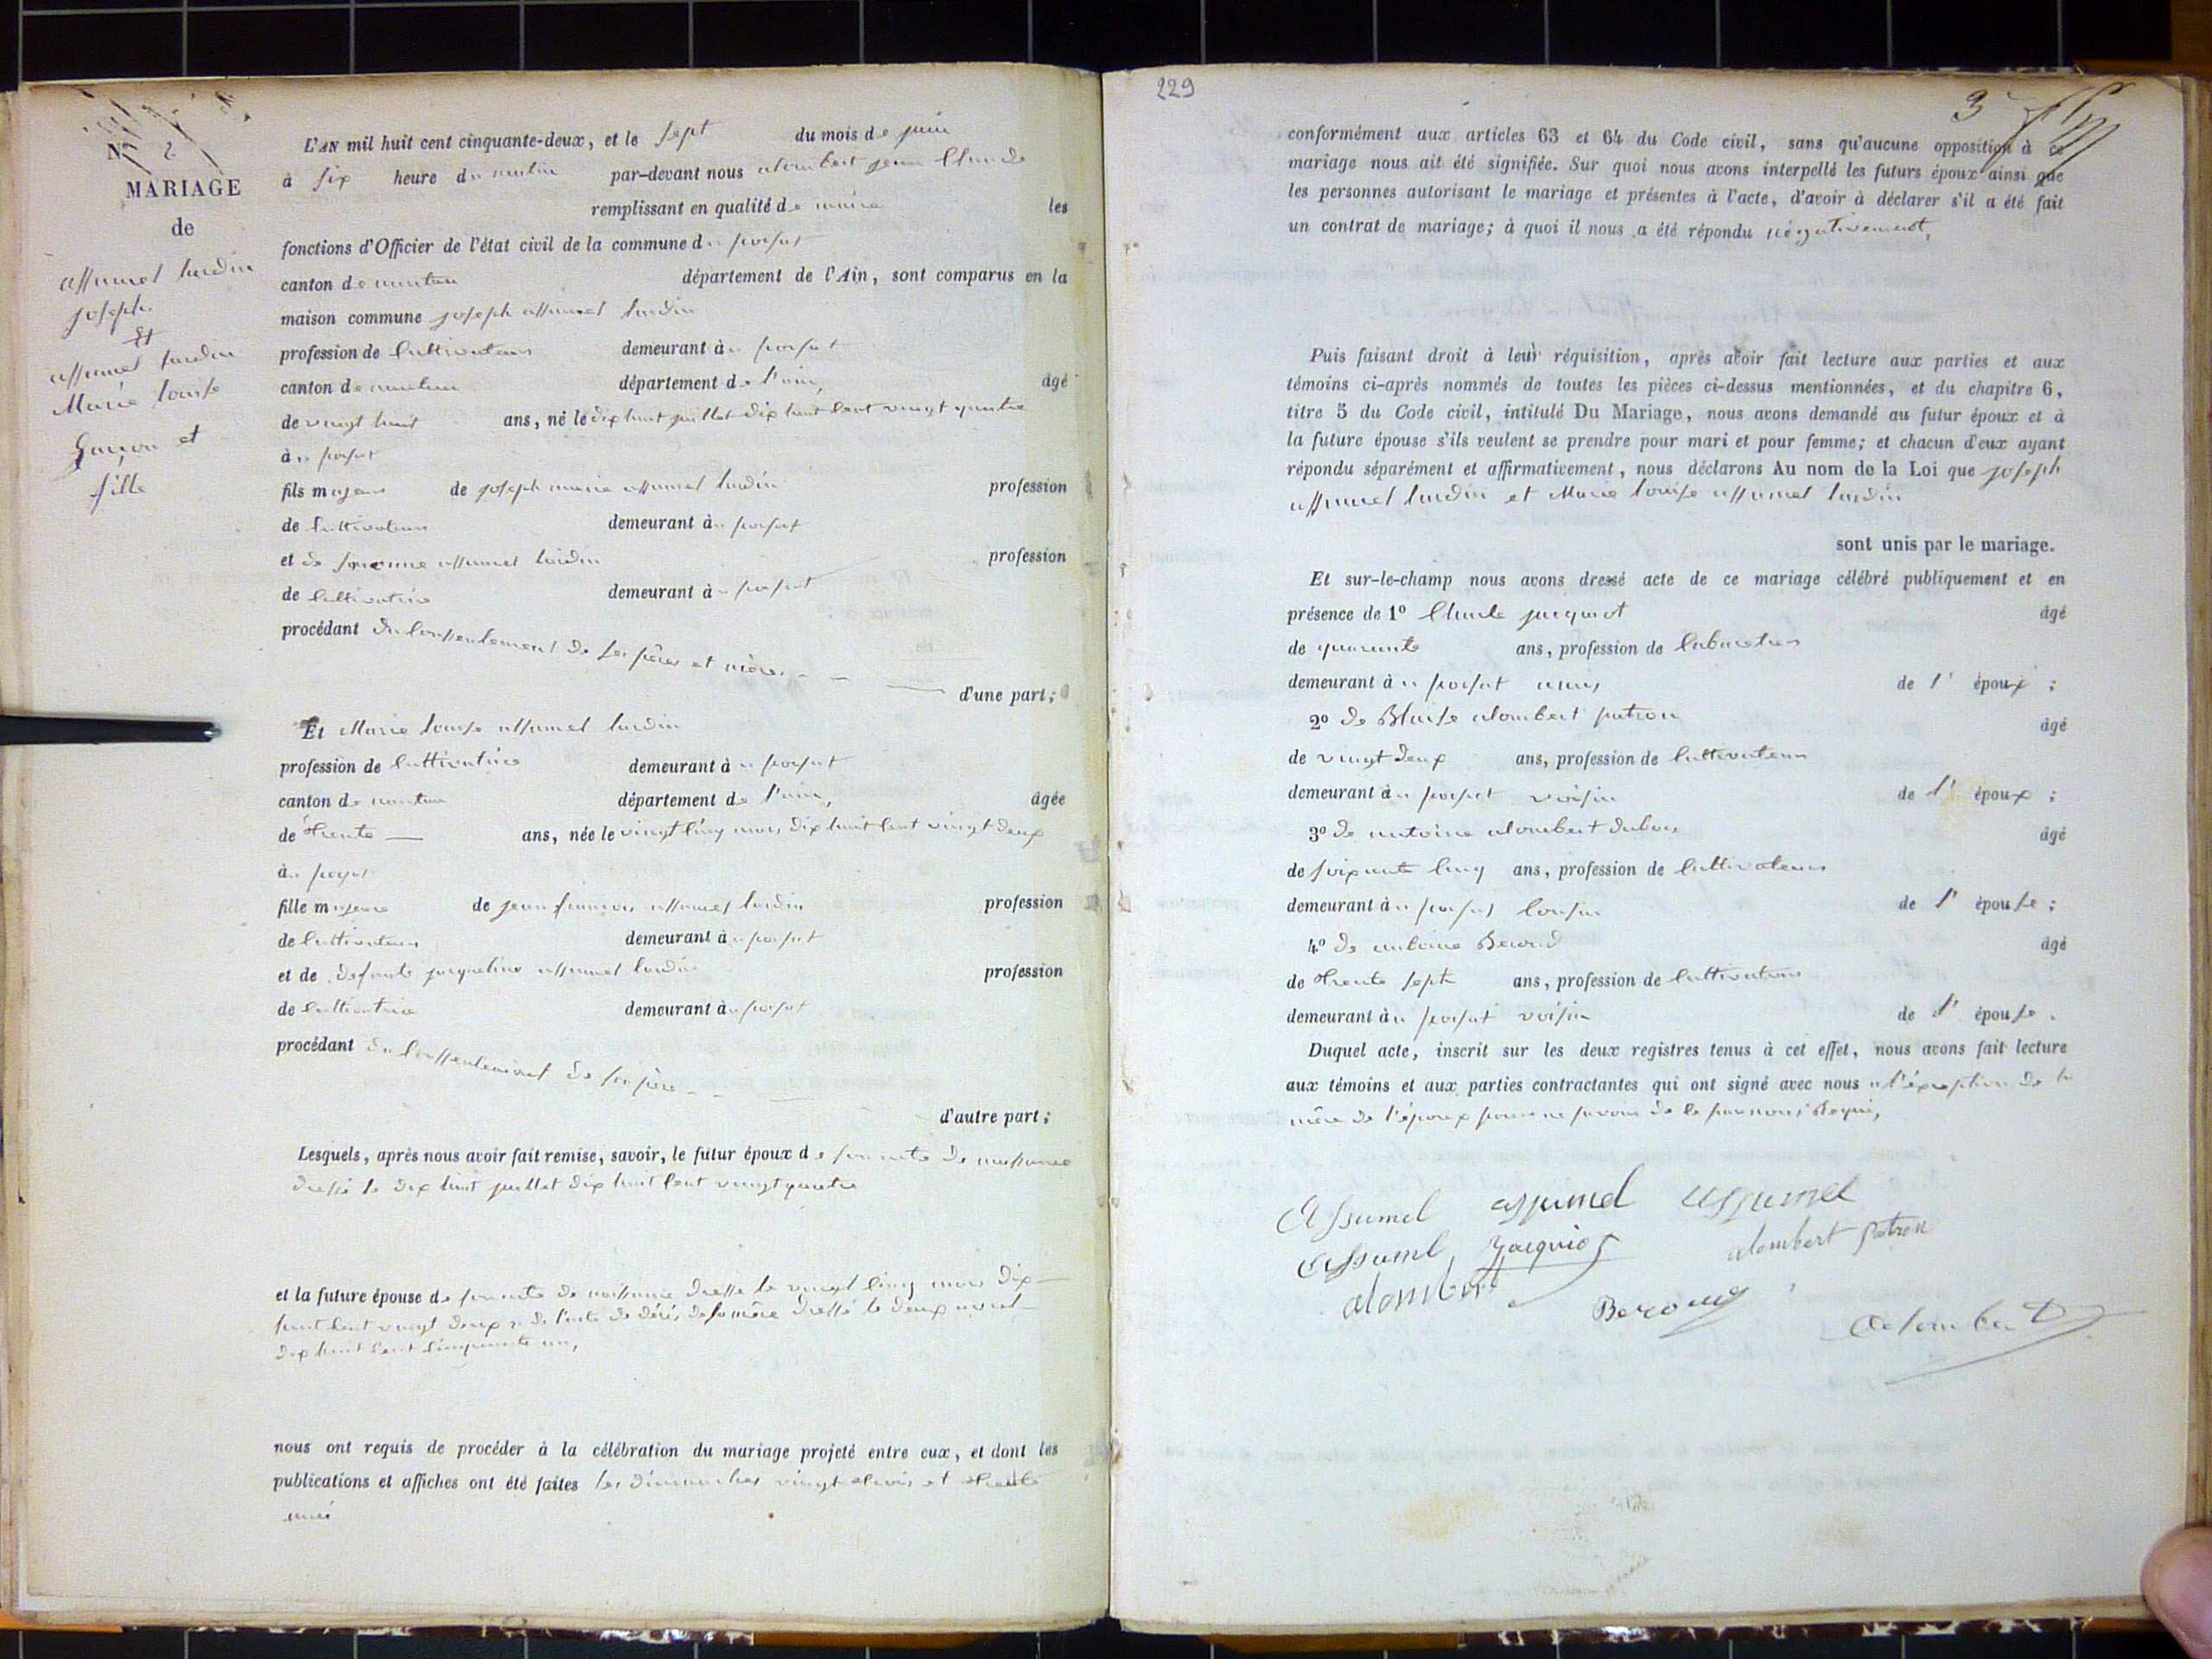 N° 2
MARIAGE
de
assumel lurdin
joseph
Et
assumel lurdin
Marie louise
Garçon et
fille
L'AN mil huit cent cinquante-deux, et le sept du mois de juin
à six heure du matin par-devant nous alombert jean Claude
remplissant en qualité de maire les
fonctions d'Officier de l'état civil de la commune du poisat
canton de nantua département de l'Ain, sont comparus en la
maison commune joseph assumel lurdin
profession de Cultivateur demeurant à au poisat
canton de nantua département de l'ain, âgé
de vingt huit ans, né le dix huit juillet dix huit Cent vingt quatre
à au poisat
fils majeur de joseph marie assumel lurdin profession
de Cultivateur demeurant à au poisat
et de assumel lurdin profession
de Cultivatrice demeurant à au poisat
procédant du Consentement de ses père et mère,
d'une part ;
Et Marie louise assumel lurdin
profession de Cultivatrice demeurant à au poisat
canton de nantua département de l'ain, âgée
de trente ans, née le vingt Cinq mars dix huit Cent vingt deux
à au poisat
fille majeure de jean françois assumel lurdin profession
de Cultivateur demeurant à au poisat
et de défunte jacqueline assumel lurdin profession
de Cultivatrice demeurant à au poisat
procédant du Consentement de son père
d'autre part ;
Lesquels, après nous avoir fait remise, savoir, le futur époux de son acte de naissance
dressé le dix huit juillet dix huit Cent vingt quatre
et la future épouse de son acte de naissance dressé le vingt Cinq mars dix
huit Cent vingt deux de l'acte de décès de sa mère dressé le deux
dix huit Cent Cinquante un,
nous ont requis de procéder à la célébration du mariage projeté entre eux, et dont les
publications et affiches ont été faites les dimanches vingt trois et trente
mai
229
3
conformément aux articles 63 et 64 du Code civil, sans qu'aucune opposition à ce
mariage nous ait été signifiée. Sur quoi nous avons interpellé les futurs époux ainsi que
les personnes autorisant le mariage et présentes à l'acte, d'avoir à déclarer s'il a été fait
un contrat de mariage ; à quoi il nous a été répondu négativement,
Puis faisant droit à leur réquisition, après avoir fait lecture aux parties et aux
témoins ci-après nommés de toutes les pièces ci-dessus mentionnées, et du chapitre 6,
titre 5 du Code civil, intitulé Du Mariage, nous avons demandé au futur époux et à
la future épouse s'ils veulent se prendre pour mari et pour femme ; et chacun d'eux ayant
répondu séparément et affirmativement, nous déclarons Au nom de la Loi que joseph
assumel lurdin et Marie louise assumel lurdin
sont unis par le mariage.
Et sur-le-champ nous avons dressé acte de ce mariage célébré publiquement et en
présence de 1° Claude jacquiot âgé
de quarante ans, profession de
demeurant à au poisat amis de l' époux ;
2° de Blaise alombert patron âgé
de vingt deux ans, profession de Cultivateur
demeurant à au poisat voisin de l' époux ;
3° de antoine alombert dubois âgé
de soixante Cinq ans, profession de Cultivateur
demeurant à au poisat Cousin de l' épouse ;
4° de antoine Beroud âgé
de trente sept ans, profession de Cultivateur
demeurant à au poisat voisin de l' épouse.
Duquel acte, inscrit sur les deux registres tenus à cet effet, nous avons fait lecture
aux témoins et aux parties contractantes qui ont signé avec nous a l'exception de la
mère de l'époux pour ne savoir de le par nous Requi,
Assumel assumel assumel
assumel Jacquiot alombert Patron
alombert
Beroud Alombert